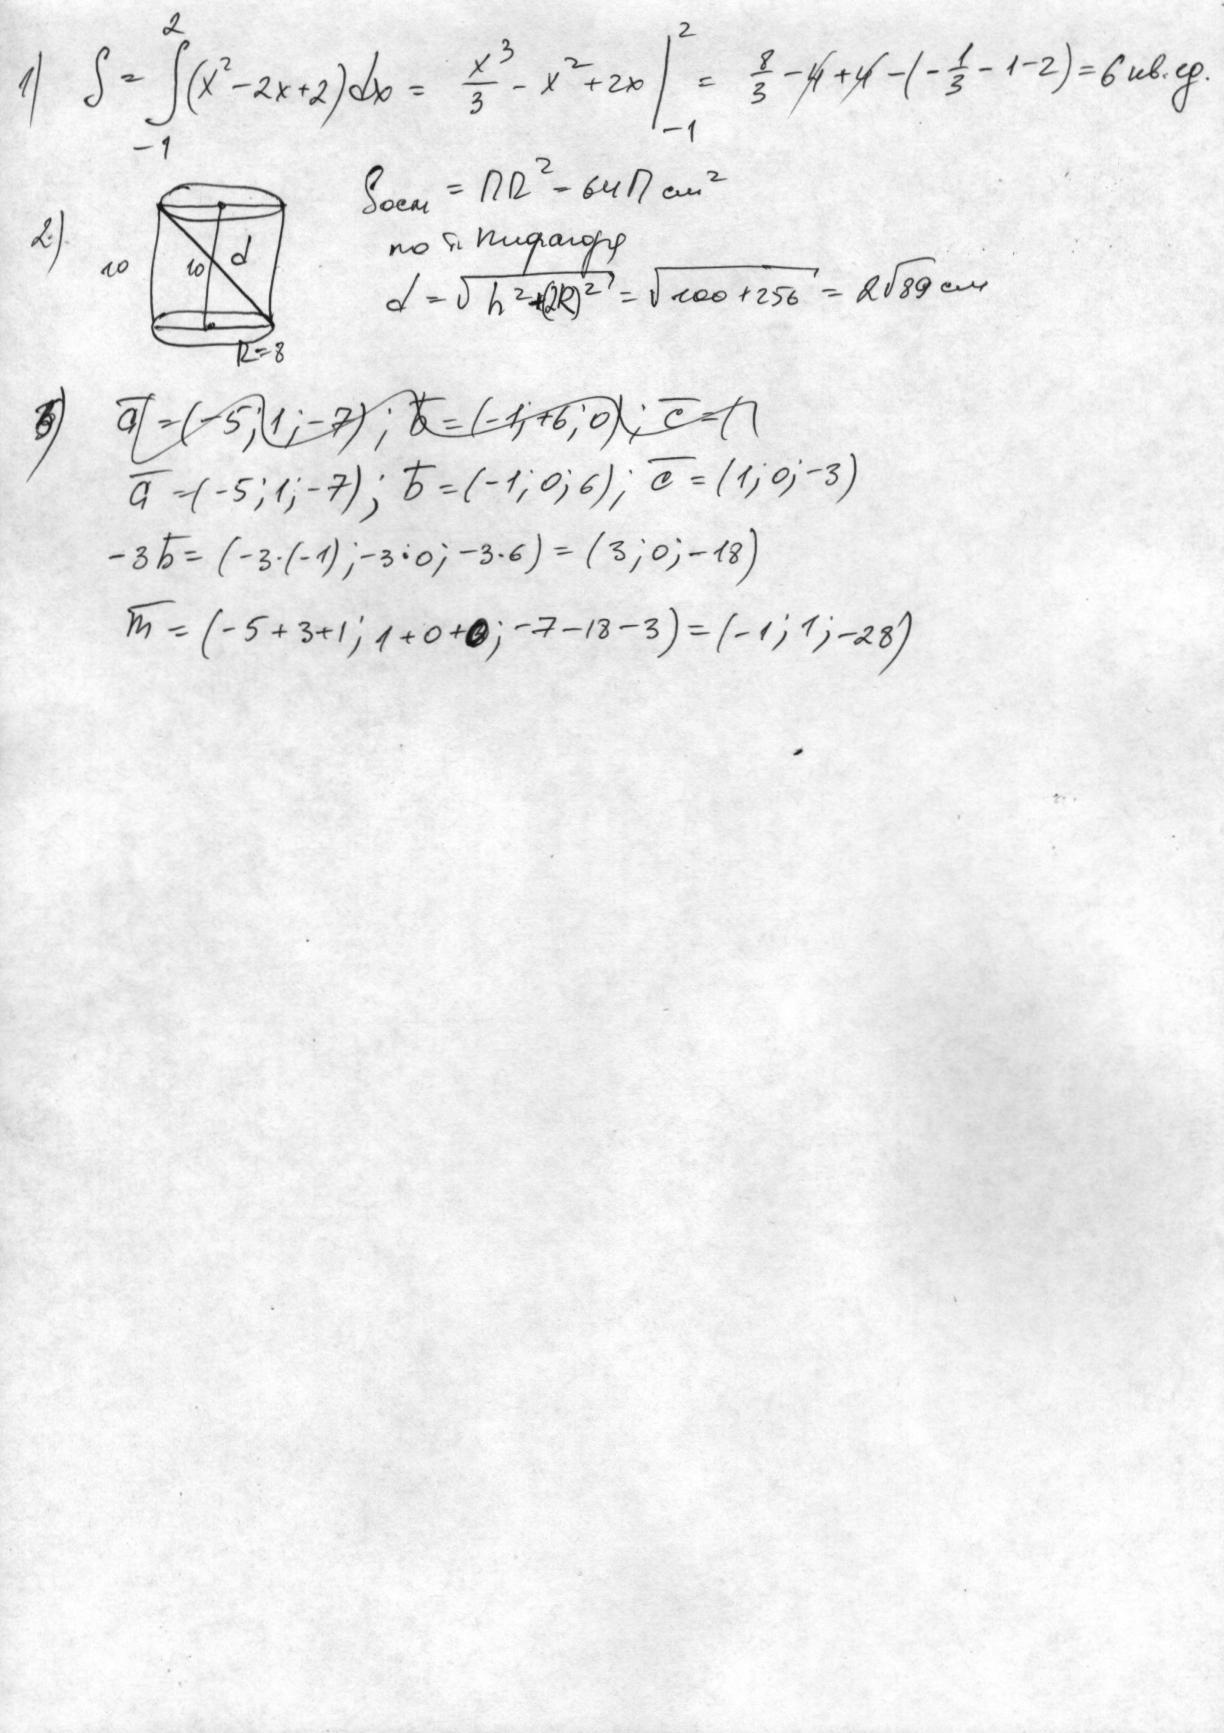 1) S = ∫₋₁² (x² − 2x + 2) dx = x³/3 − x² + 2x |₋₁² = 8/3 − 4 + 4 − (−1/3 − 1 − 2) = 6 кв. ед.
2) 10 10 d R = 8
Sосн = ПR² − 64П см²
по т. Пифагора
d = √(h² + (2R)²) = √(100 + 256) = 2√89 см
3) a = (−5; 1; −7); b = (−1; +6; 0); c = (1
a = (−5; 1; −7); b = (−1; 0; 6); c = (1; 0; −3)
−3b = (−3·(−1); −3·0; −3·6) = (3; 0; −18)
m = (−5 + 3 + 1; 1 + 0 + 0; −7 − 18 − 3) = (−1; 1; −28)